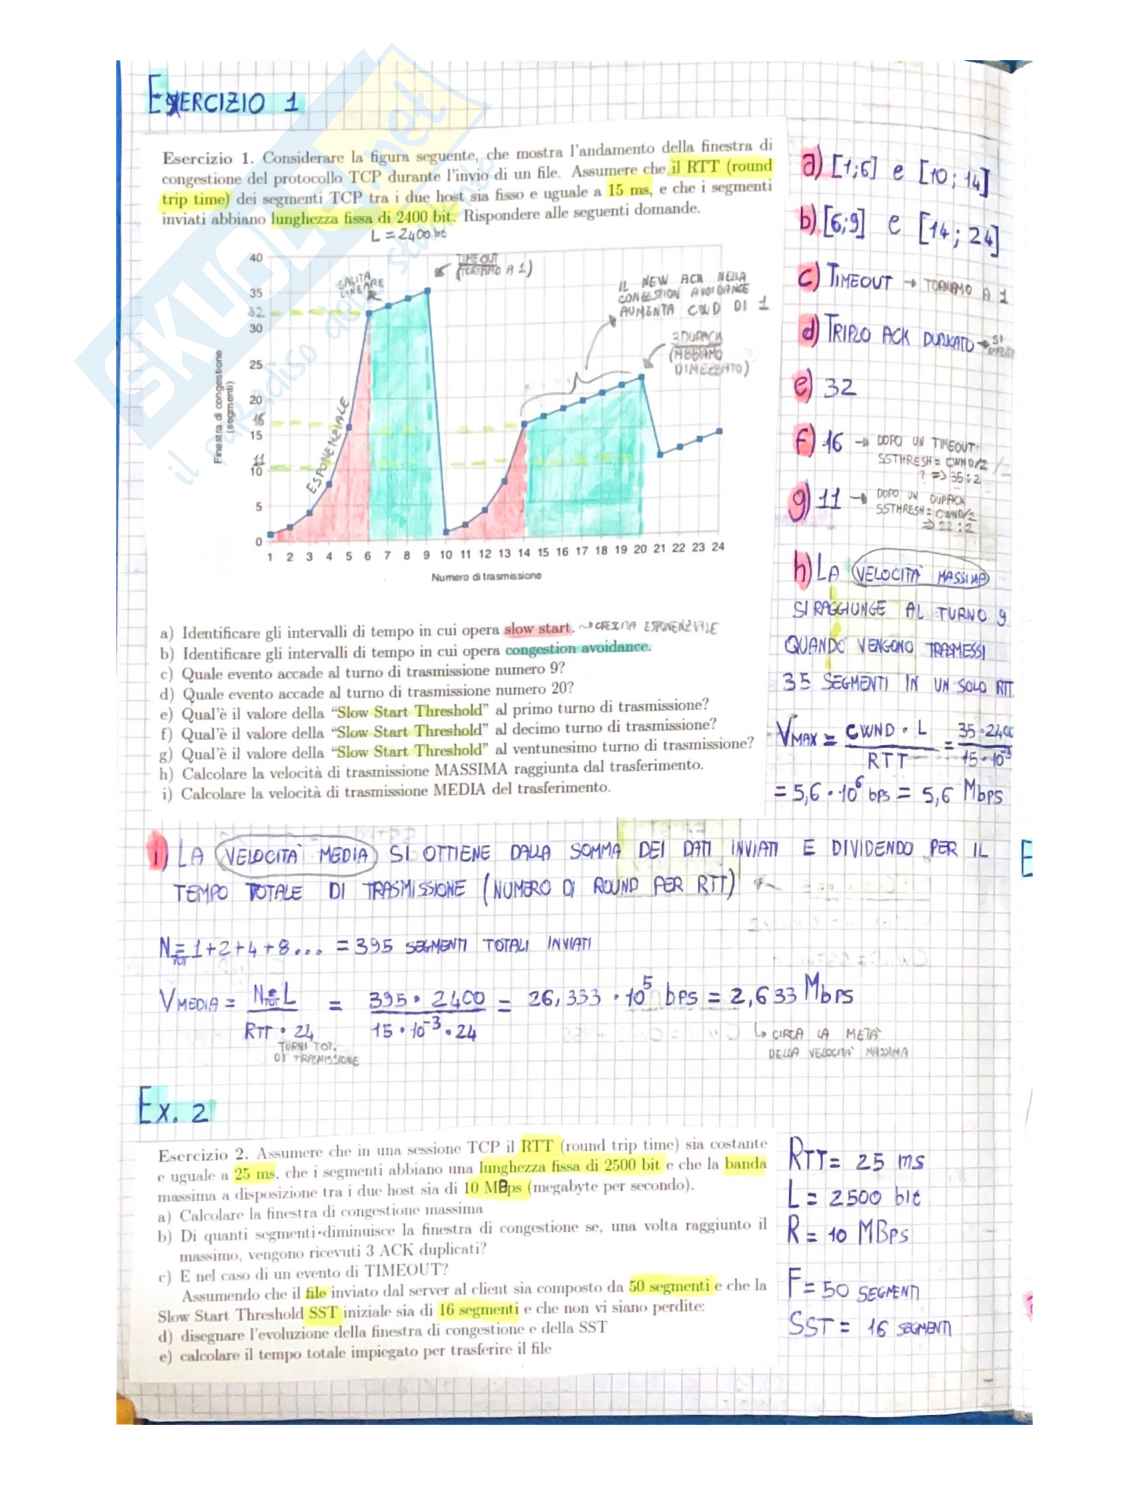 ESERCIZIO 1
Esercizio 1. Considerare la figura seguente, che mostra l'andamento della finestra di
congestione del protocollo TCP durante l'invio di un file. Assumere che il RTT (round
trip time) dei segmenti TCP tra i due host sia fisso e uguale a 15 ms, e che i segmenti
inviati abbiano lunghezza fissa di 2400 bit. Rispondere alle seguenti domande.
L = 2400 bit
Finestra di congestione
(segmenti)
40
35
32
30
25
20
16
15
11
10
5
0
1 2 3 4 5 6 7 8 9 10 11 12 13 14 15 16 17 18 19 20 21 22 23 24
Numero di trasmissione
ESPONENZIALE
SALITA
LINEARE
TIMEOUT
(TORNIAMO A 1)
IL NEW ACK NELLA
CONGESTION AVOIDANCE
AUMENTA CWD DI 1
3 DUPACK
(ABBIAMO
DIMEZZATO)
a) Identificare gli intervalli di tempo in cui opera slow start. → CRESCITA ESPONENZIALE
b) Identificare gli intervalli di tempo in cui opera congestion avoidance.
c) Quale evento accade al turno di trasmissione numero 9?
d) Quale evento accade al turno di trasmissione numero 20?
e) Qual'è il valore della "Slow Start Threshold" al primo turno di trasmissione?
f) Qual'è il valore della "Slow Start Threshold" al decimo turno di trasmissione?
g) Qual'è il valore della "Slow Start Threshold" al ventunesimo turno di trasmissione?
h) Calcolare la velocità di trasmissione MASSIMA raggiunta dal trasferimento.
i) Calcolare la velocità di trasmissione MEDIA del trasferimento.
a) [1;6] e [10;14]
b) [6;9] e [14;24]
c) TIMEOUT → TORNIAMO A 1
d) TRIPLO ACK DUPLICATO → SI
e) 32
f) 16 → DOPO UN TIMEOUT
SSTHRESH = CWND/2
? => 35:2
g) 11 → DOPO UN DUPACK
SSTHRESH = CWND/2
=> 22:2
h) LA VELOCITA' MASSIMA
SI RAGGIUNGE AL TURNO 9
QUANDO VENGONO TRASMESSI
35 SEGMENTI IN UN SOLO RTT
VMAX = CWND · L / RTT = 35·2400 / 15·10⁻³
= 5,6 · 10⁶ bps = 5,6 Mbps
i) LA VELOCITA' MEDIA SI OTTIENE DALLA SOMMA DEI DATI INVIATI E DIVIDENDO PER IL
TEMPO TOTALE DI TRASMISSIONE (NUMERO DI ROUND PER RTT)
NTOT = 1+2+4+8... = 395 SEGMENTI TOTALI INVIATI
VMEDIA = NTOT · L / RTT · 24 = 395 · 2400 / 15 · 10⁻³ · 24 = 26,333 · 10⁵ bps = 2,633 Mbps
TURNI TOT.
DI TRASMISSIONE
↳ CIRCA LA META'
DELLA VELOCITA' MASSIMA
Ex. 2
Esercizio 2. Assumere che in una sessione TCP il RTT (round trip time) sia costante
e uguale a 25 ms, che i segmenti abbiano una lunghezza fissa di 2500 bit e che la banda
massima a disposizione tra i due host sia di 10 MBps (megabyte per secondo).
a) Calcolare la finestra di congestione massima
b) Di quanti segmenti diminuisce la finestra di congestione se, una volta raggiunto il
massimo, vengono ricevuti 3 ACK duplicati?
c) E nel caso di un evento di TIMEOUT?
Assumendo che il file inviato dal server al client sia composto da 50 segmenti e che la
Slow Start Threshold SST iniziale sia di 16 segmenti e che non vi siano perdite:
d) disegnare l'evoluzione della finestra di congestione e della SST
e) calcolare il tempo totale impiegato per trasferire il file
RTT = 25 ms
L = 2500 bit
R = 10 MBps
F = 50 SEGMENTI
SST = 16 SEGMENTI
SKUOLA.net
il paradiso dello studente